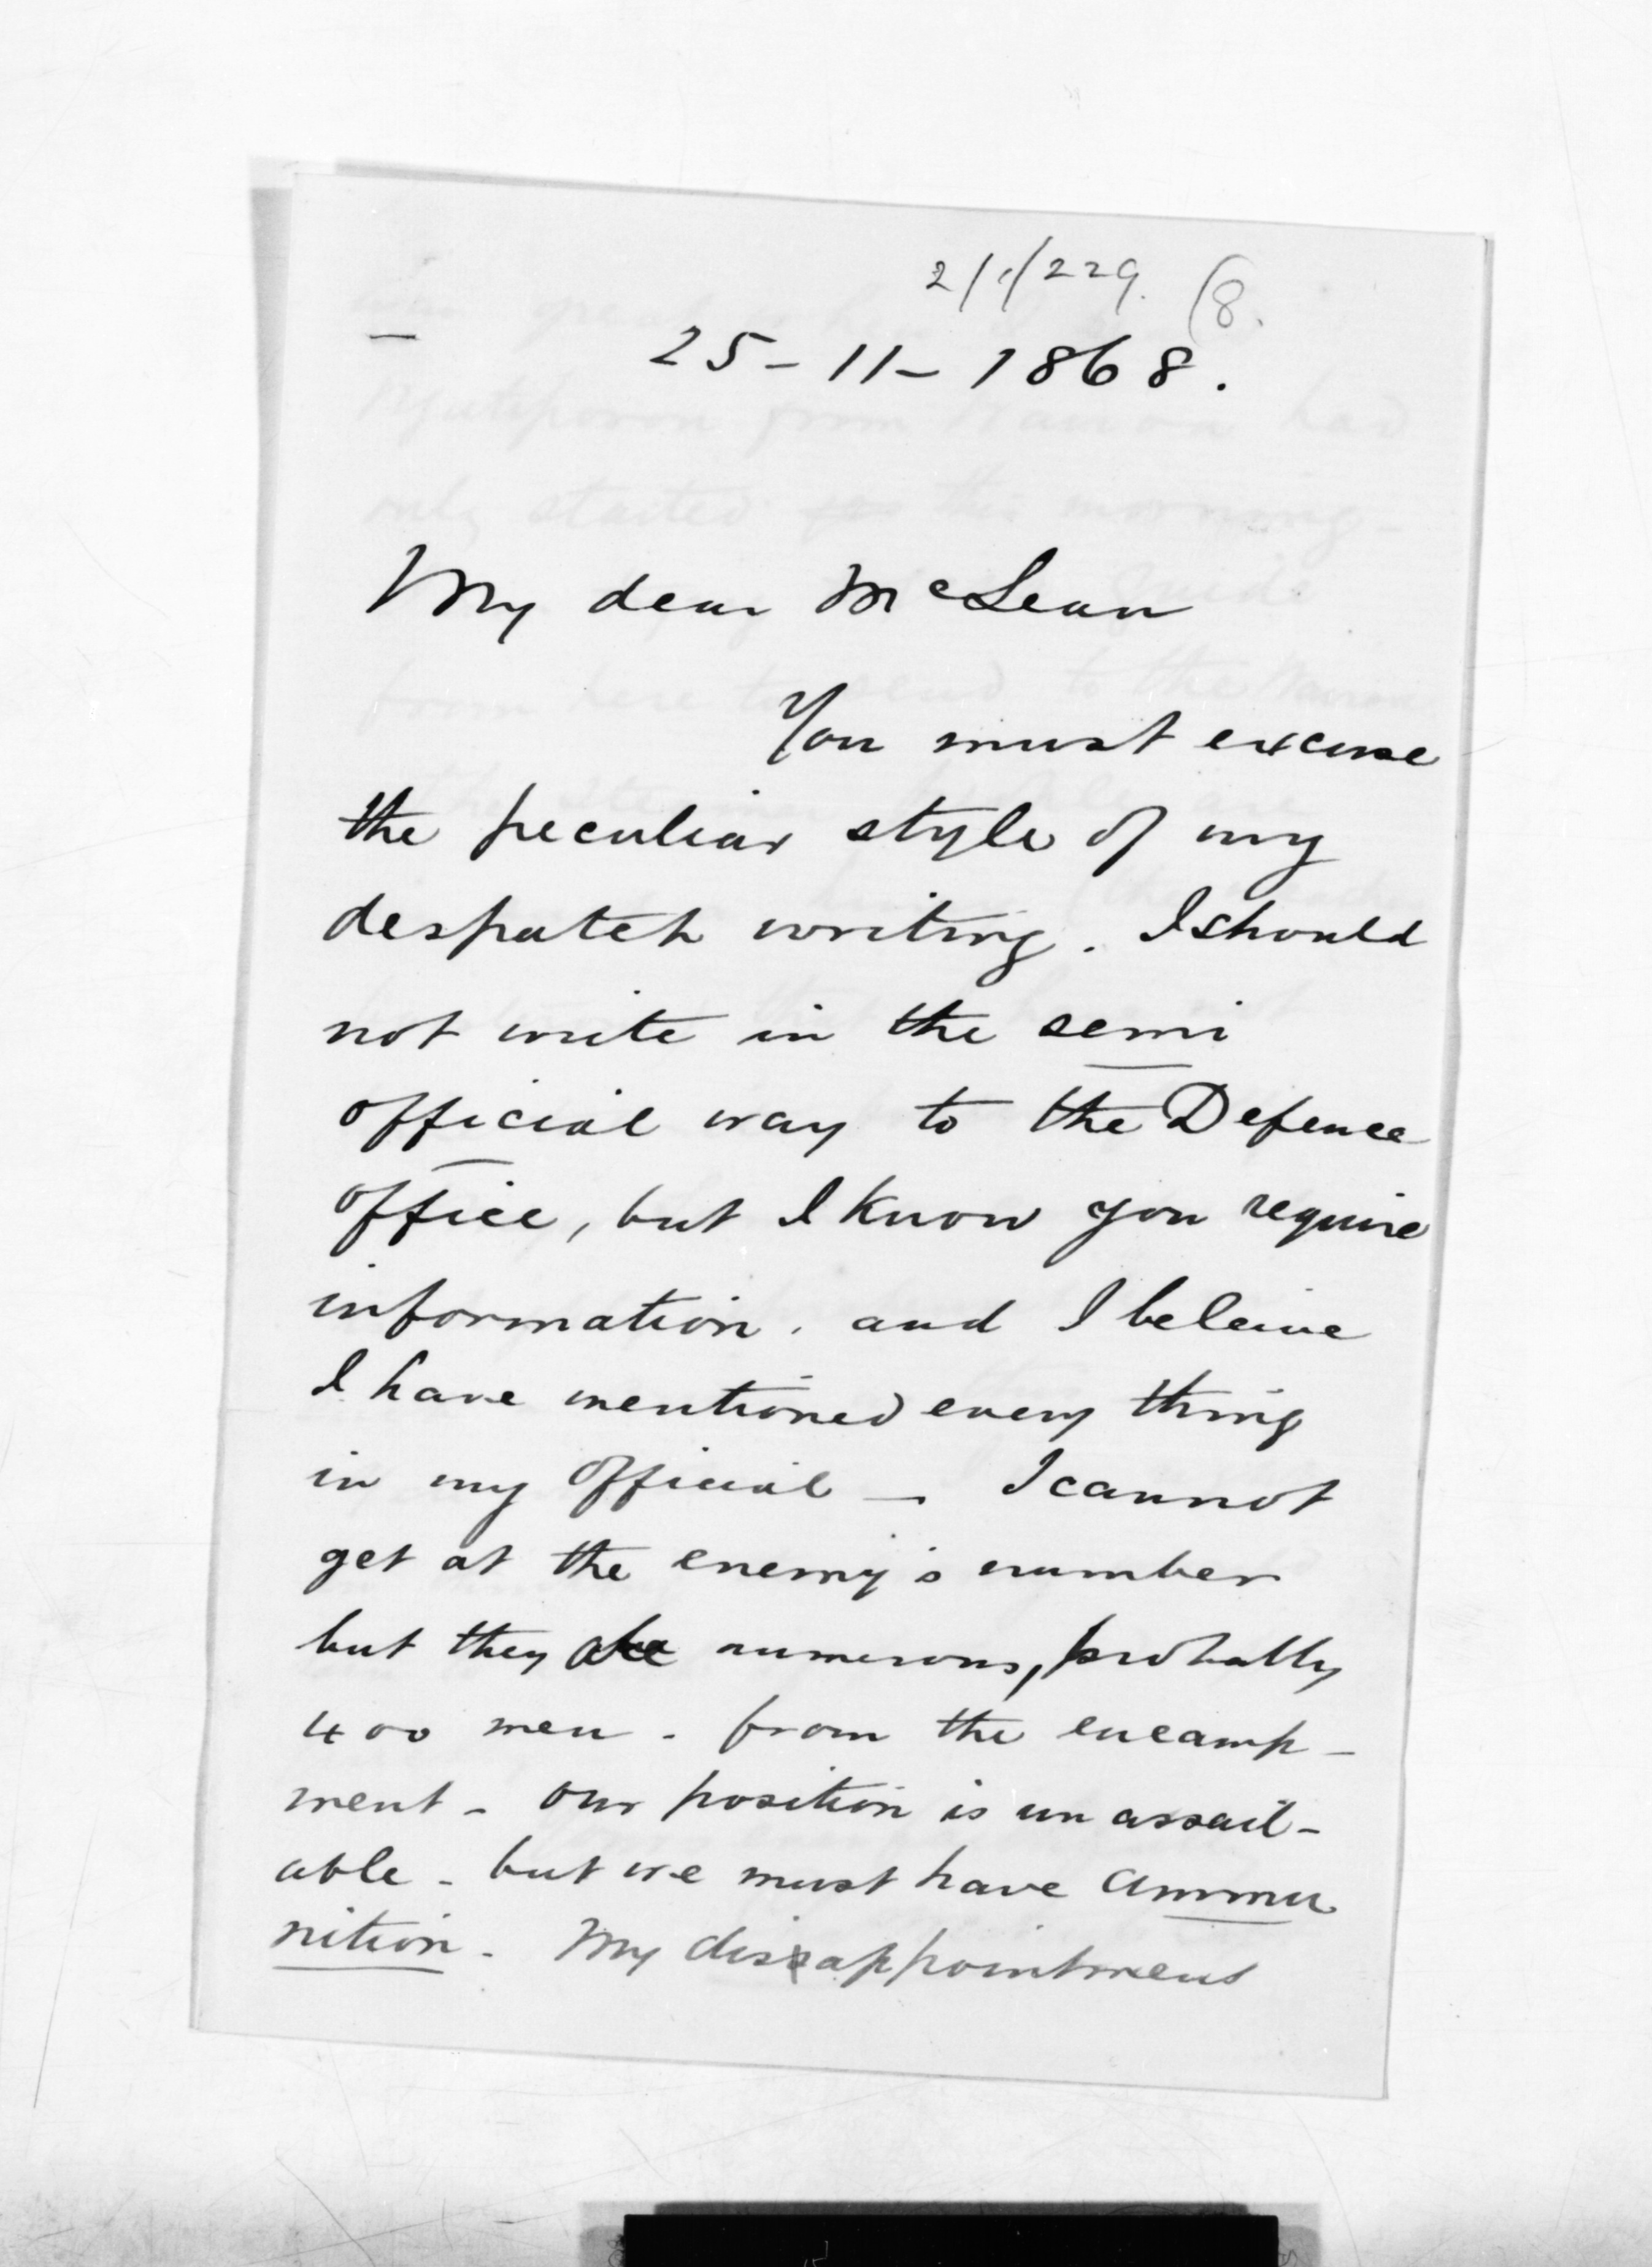 2/1/229. (8.
25-11-1868.
My dear McLean
You must excuse
the peculiar style of my
despatch writing. I should
not write in the semi
official way to the Defence
office, but I know you require
information. and I beleive
I have mentioned every thing
in my official - I cannot
get at the enemy's number
but they are numerous, probably
400 men - from the encamp-
ment - our position is un assail-
able - but we must have ammu
nition - My disappointment